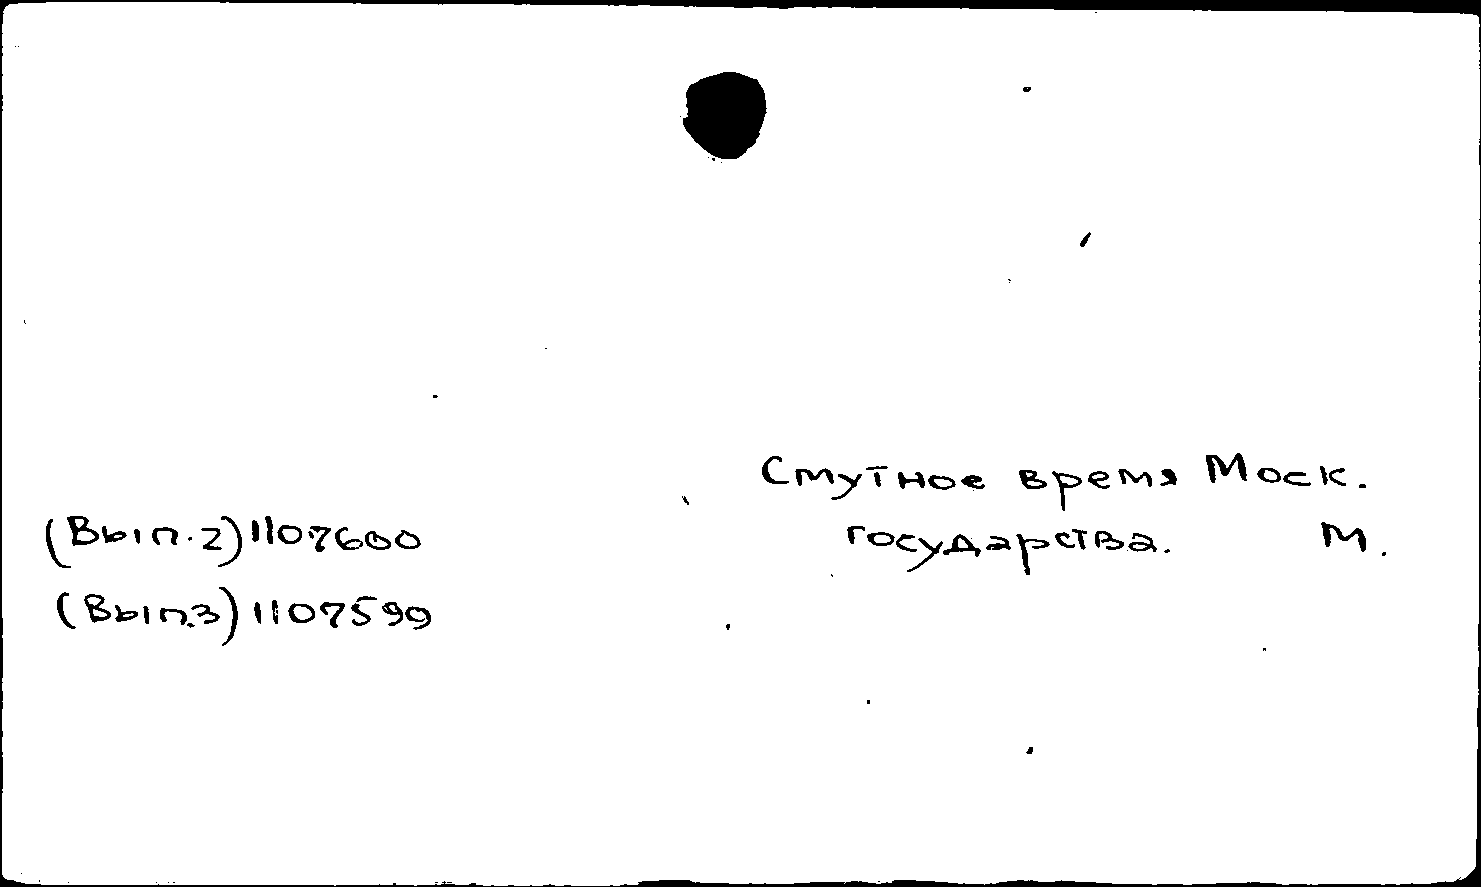 Смутное время Моск.
государства. М.
(Вып.2) 1107600
(Вып.3) 1107599